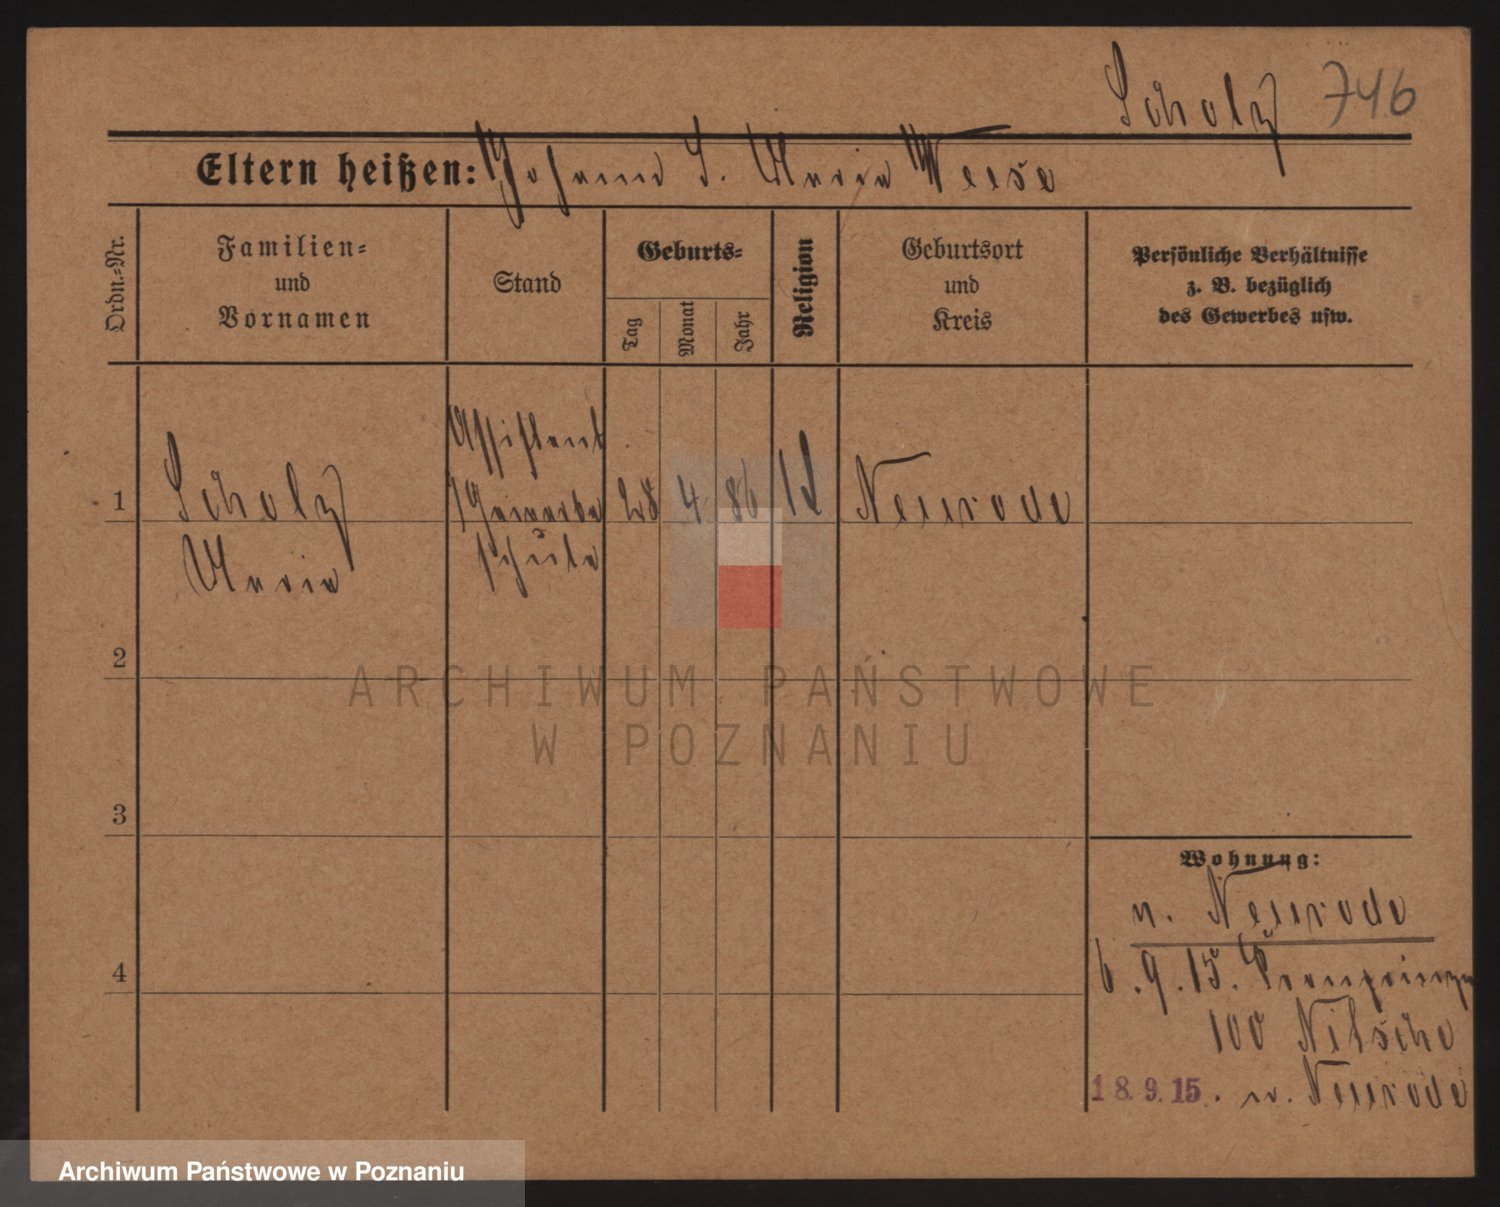 Scholz 746
Eltern heißen: Johann S. Maria Weese
Ordn.=Nr.
Familien=
und
Vornamen
Stand
Geburts=
Tag
Monat
Jahr
Religion
Geburtsort
und
Kreis
Persönliche Verhältnisse
z. B. bezüglich
des Gewerbes usw.
1
Scholz
Maria
Assistent
Gewerbe
schule
28 4. 86
Neurode
2
3
4
Wohnung:
n. Neurode
6.9.15. Kronprinzen
100 Nitsche
18.9.15. n. Neurode
ARCHIWUM PAŃSTWOWE
W POZNANIU
Archiwum Państwowe w Poznaniu